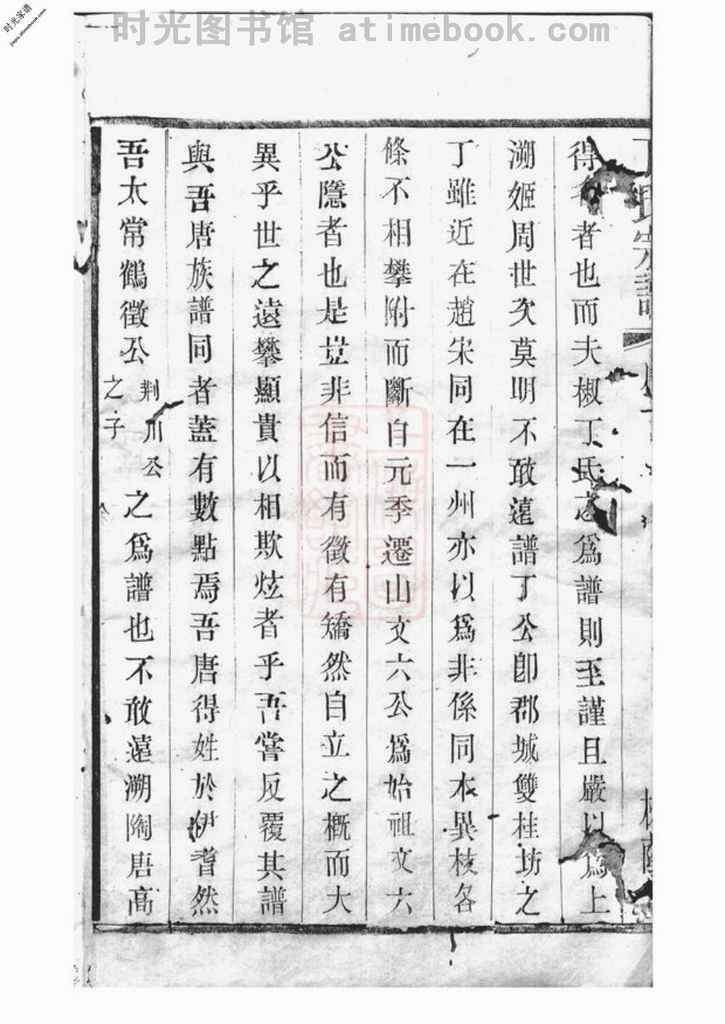 时光图书馆 atimebook.com
时光家谱
氏宗譜
得者也而夫椒丁氏之爲譜則至謹且嚴以爲上
溯姬周世次莫明不敢遠譜丁公卽郡城雙桂坊之
丁雖近在趙宋同在一州亦以爲非係同本異枝各
條不相攀附而斷自元季遷山文六公爲始祖文六
公隱者也是豈非信而有徵有矯然自立之概而大
異乎世之遠攀顯貴以相欺炫者乎吾嘗反覆其譜
與吾唐族譜同者蓋有數點焉吾唐得姓於伊耆然
吾太常鶴徵公荆川公之子之爲譜也不敢遠溯陶唐高